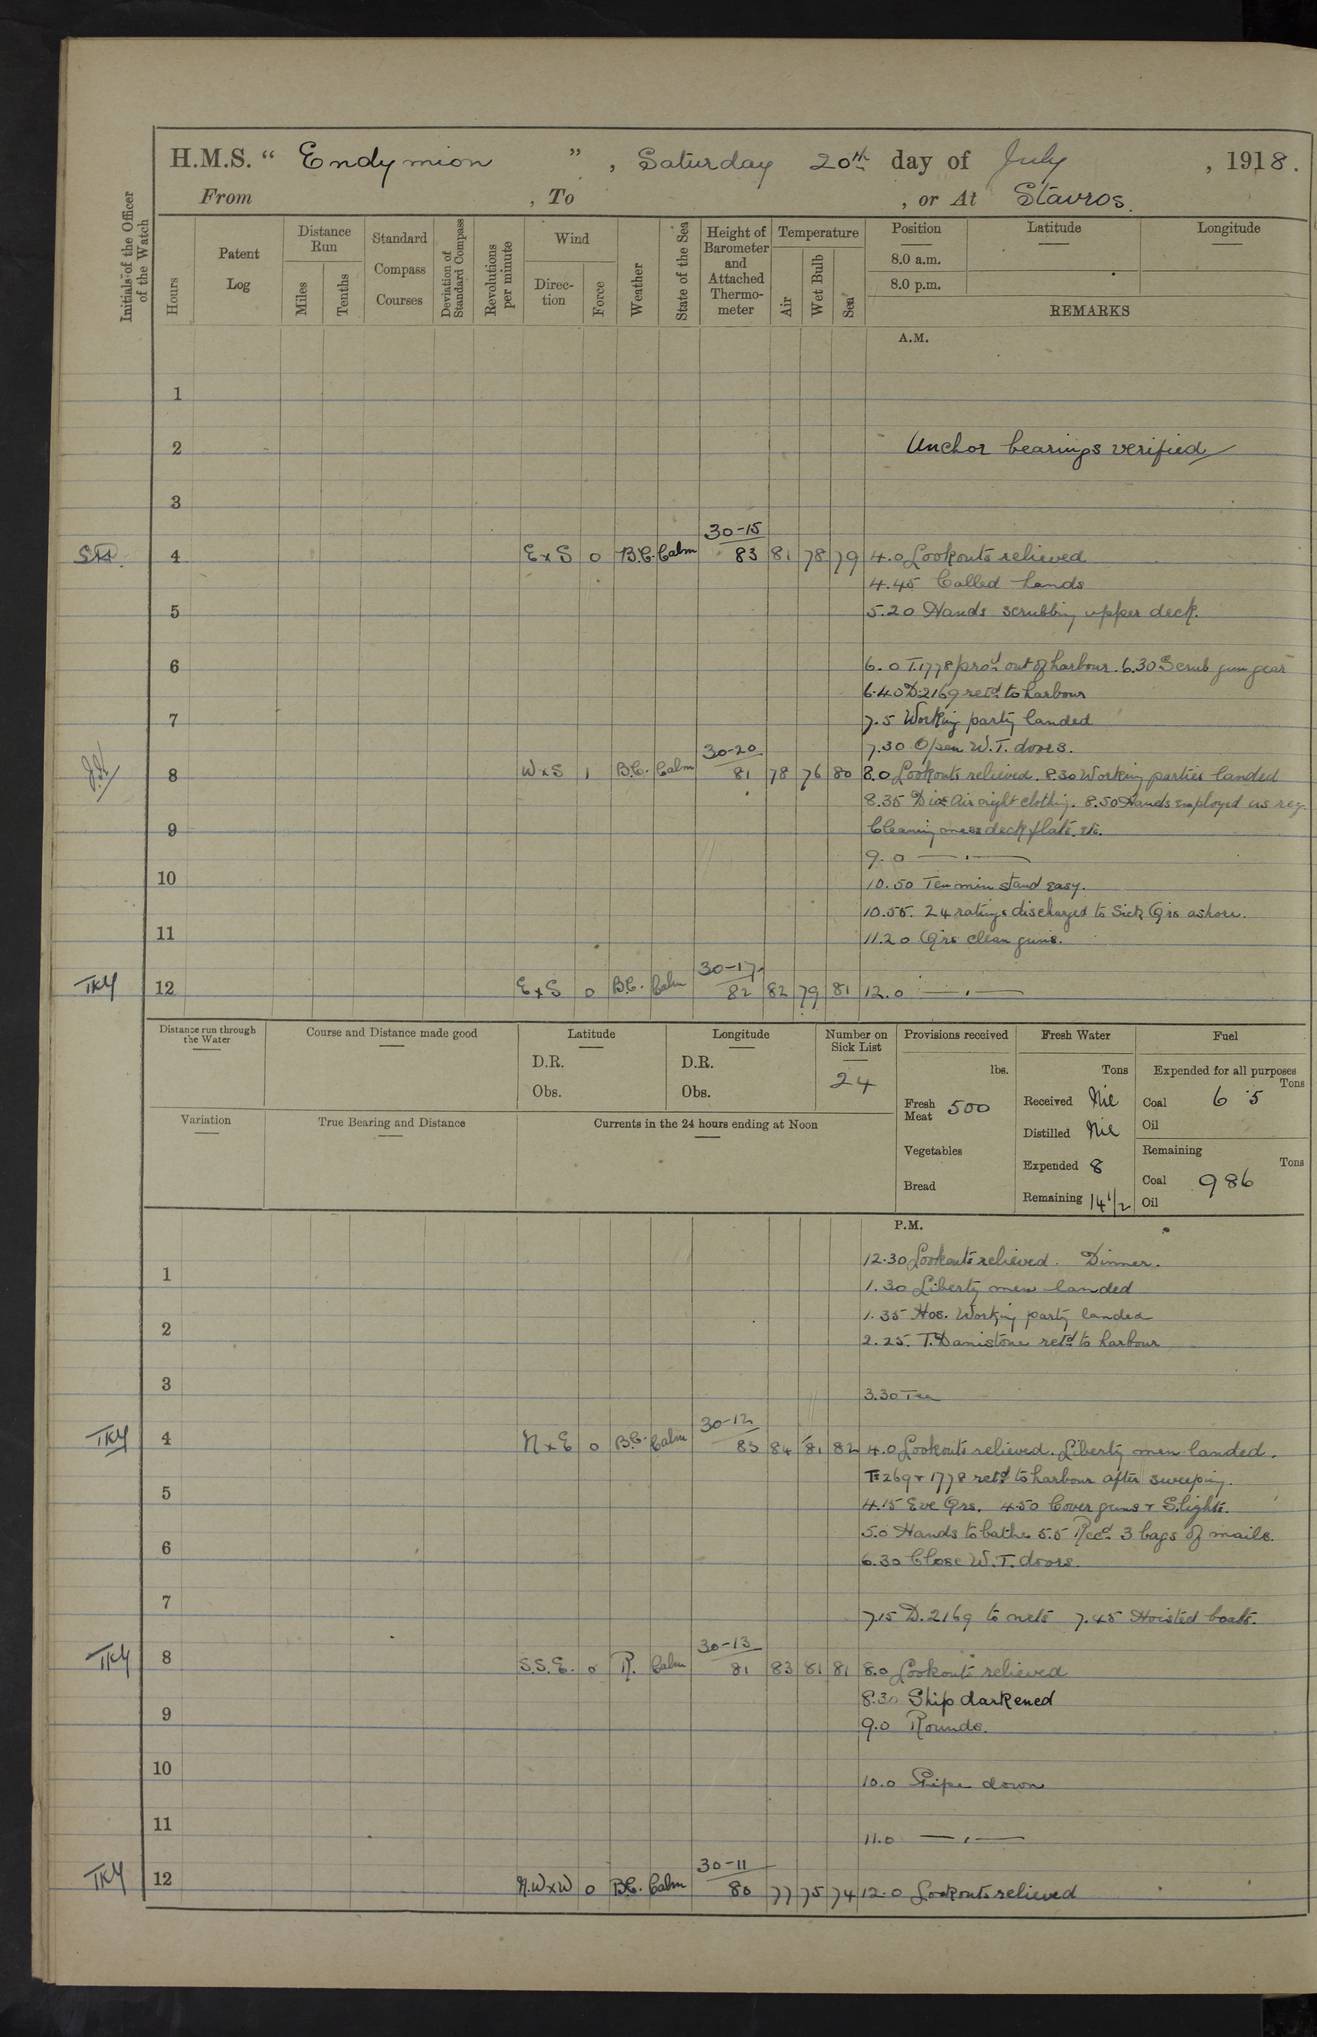 H.M.S. “ Endymion ” , Saturday 20th day of July , 1918.
From , To , or At Stavros.
Initials of the Officer of the Watch
Hours
Patent Log
Distance Run
Miles
Tenths
Standard Compass Courses
Deviation of Standard Compass
Revolutions per minute
Wind
Direction
Force
Weather
State of the Sea
Height of Barometer and Attached Thermometer
Temperature
Air
Wet Bulb
Sea
Position
8.0 a.m.
8.0 p.m.
Latitude
Longitude
REMARKS
A.M.
1
2 Anchor bearings verified
3
30-15
4 E x S 0 B.C. Calm 83 81 78 79 4.0 Lookouts relieved
4.45 Called hands
5 5.20 Hands scrubbing upper deck.
6 6.0 T.1778 procd out of harbour. 6.30 Scrub gun gear
6.40 D.2169 retd to harbour
7 7.5 Working party landed
30-20 7.30 Open W.T. doors.
8 W x S 1 B.C. Calm 81 78 76 80 8.0 Lookouts relieved. 8.30 Working parties landed
8.35 Air night clothing. 8.50 Hands employed as req.
9 Cleaning mess deck flats. etc.
9.0 — . —
10 10.50 Ten min stand easy.
10.55. 24 ratings discharged to Sick Qrs ashore.
11 11.20 Qrs clean guns.
30-17
TKY 12 E x S 0 B.C. Calm 82 82 79 81 12.0 — . —
Distance run through the Water
Course and Distance made good
Latitude
D.R.
Obs.
Longitude
D.R.
Obs.
Number on Sick List
24
Provisions received
lbs.
Fresh Meat 500
Vegetables
Bread
Fresh Water
Tons
Received Nil
Distilled Nil
Expended 8
Remaining 14 1/2
Fuel
Expended for all purposes
Tons
Coal 65
Oil
Remaining
Tons
Coal 986
Oil
Variation
True Bearing and Distance
Currents in the 24 hours ending at Noon
P.M.
12.30 Lookouts relieved. Dinner.
1 1.30 Liberty men landed
1.35 Hos. Working party landed
2 2.25. T. Danistone retd to harbour
3 3.30 Tea
30-12
TKY 4 N x E 0 B.C. Calm 83 84 81 82 4.0 Lookouts relieved. Liberty men landed.
269 & 1778 retd to harbour after sweeping.
5 4.15 Eve Qrs. 4.50 Cover guns & S.lights.
5.0 Hands to bathe 5.5 Recd 3 bags of mails.
6 6.30 Close W.T. doors.
7 7.15 D.2169 to nets 7.45 Hoisted boats.
30-13
TKY 8 S.S.E. 0 R. Calm 81 83 81 81 8.0 Lookouts relieved
8.30 Ship darkened
9 9.0 Rounds.
10 10.0 Pipe down
11 11.0 — . —
30-11
TKY 12 N.W x W 0 B.C. Calm 80 77 75 74 12.0 Lookouts relieved